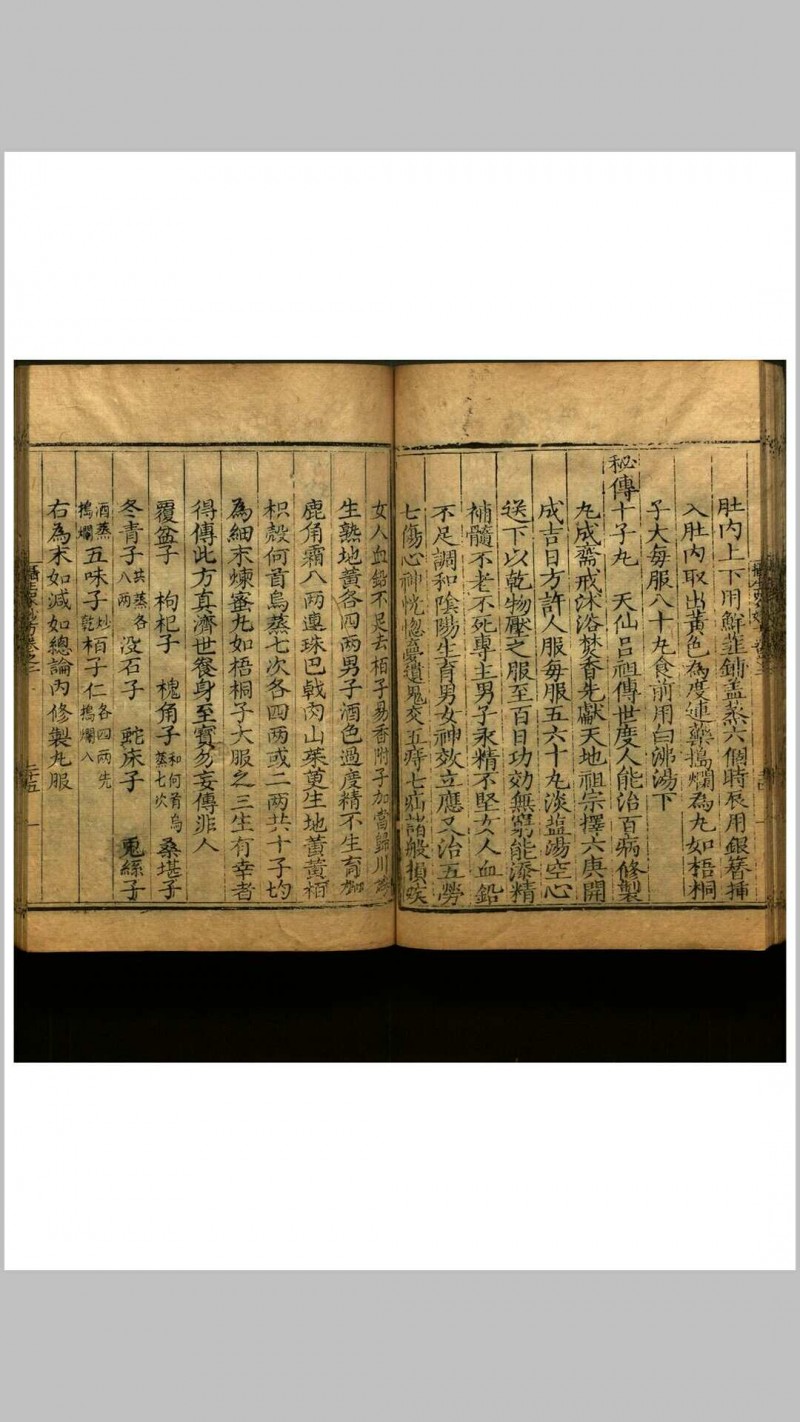 肚内上下用鮮韮鋪盖蒸六個時辰用銀簪挿
入肚内取出黃色為度連藥搗爛為丸如梧桐
子大每服八十丸食前用白沸湯下
秘傳十子丸 天仙呂祖傳世度人能治百病修製
丸成齋戒沐浴焚香先獻天地祖宗擇六庚開
成吉日方許人服每服五六十丸淡盐湯空心
送下以乾物壓之服至百日功効無窮能添精
補髓不老不死專主男子永精不堅女人血鉛
不足調和陰陽生育男女神效立應又治五勞
七傷心神恍惚夢遺鬼交五痔七疝諸般損疾
女人血鉛不足去栢子易香附子加當歸川芎
生熟地黃各四两男子酒色過度精不生育加
鹿角霜八两連珠巴戟肉山茱萸生地黃黃栢
枳殼何首烏蒸七次各四两或二两共十子均
為細末煉蜜丸如梧桐子大服之三生有幸者
得傳此方真濟世養身至寳勿妄傳非人
覆盆子 枸杞子 槐角子和何首烏蒸七次 桑堪子
冬青子共蒸各八两 没石子 蛇床子 兎絲子
酒蒸搗爛 五味子炒乾 栢子仁各四两先搗爛入
右為末如減如總論内修製丸服